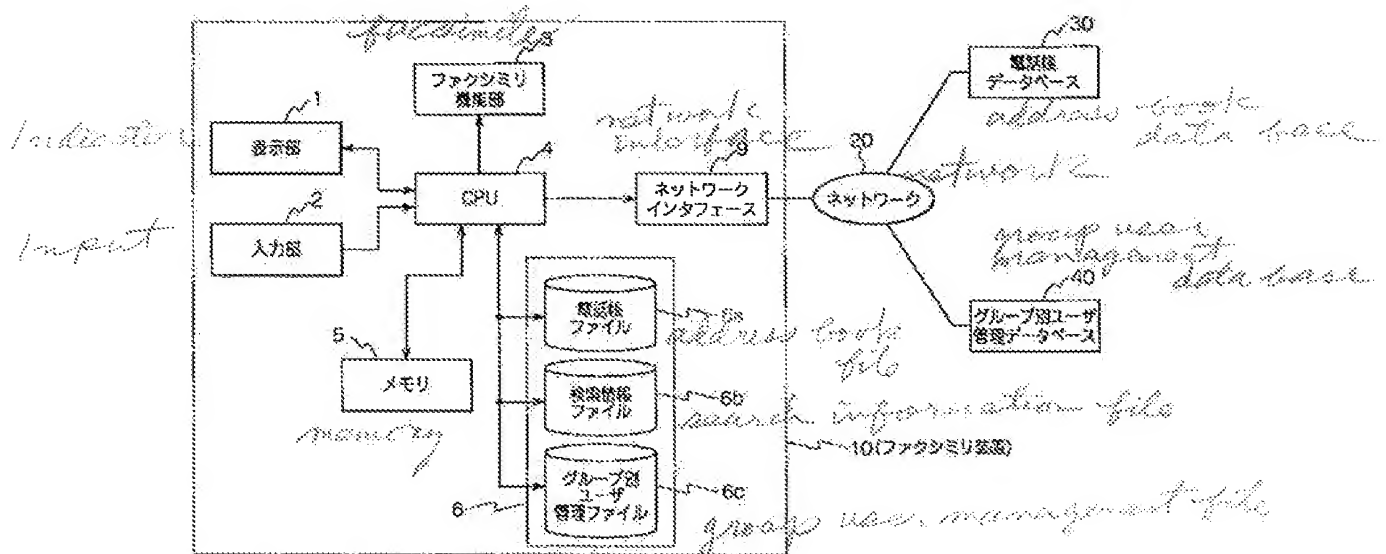 facsimile
3
ファクシミリ
機能部
1
Indicator
表示部
2
Input
入力部
4
CPU
network
interface
9
ネットワーク
インタフェース
20
network
ネットワーク
30
電話帳
データベース
address book
data base
group user
management
data base
40
グループ別ユーザ
管理データベース
5
メモリ
memory
電話帳
ファイル
6a
address book
file
検索情報
ファイル
6b
search information file
10(ファクシミリ装置)
グループ別
ユーザ
管理ファイル
6c
6
group user management file